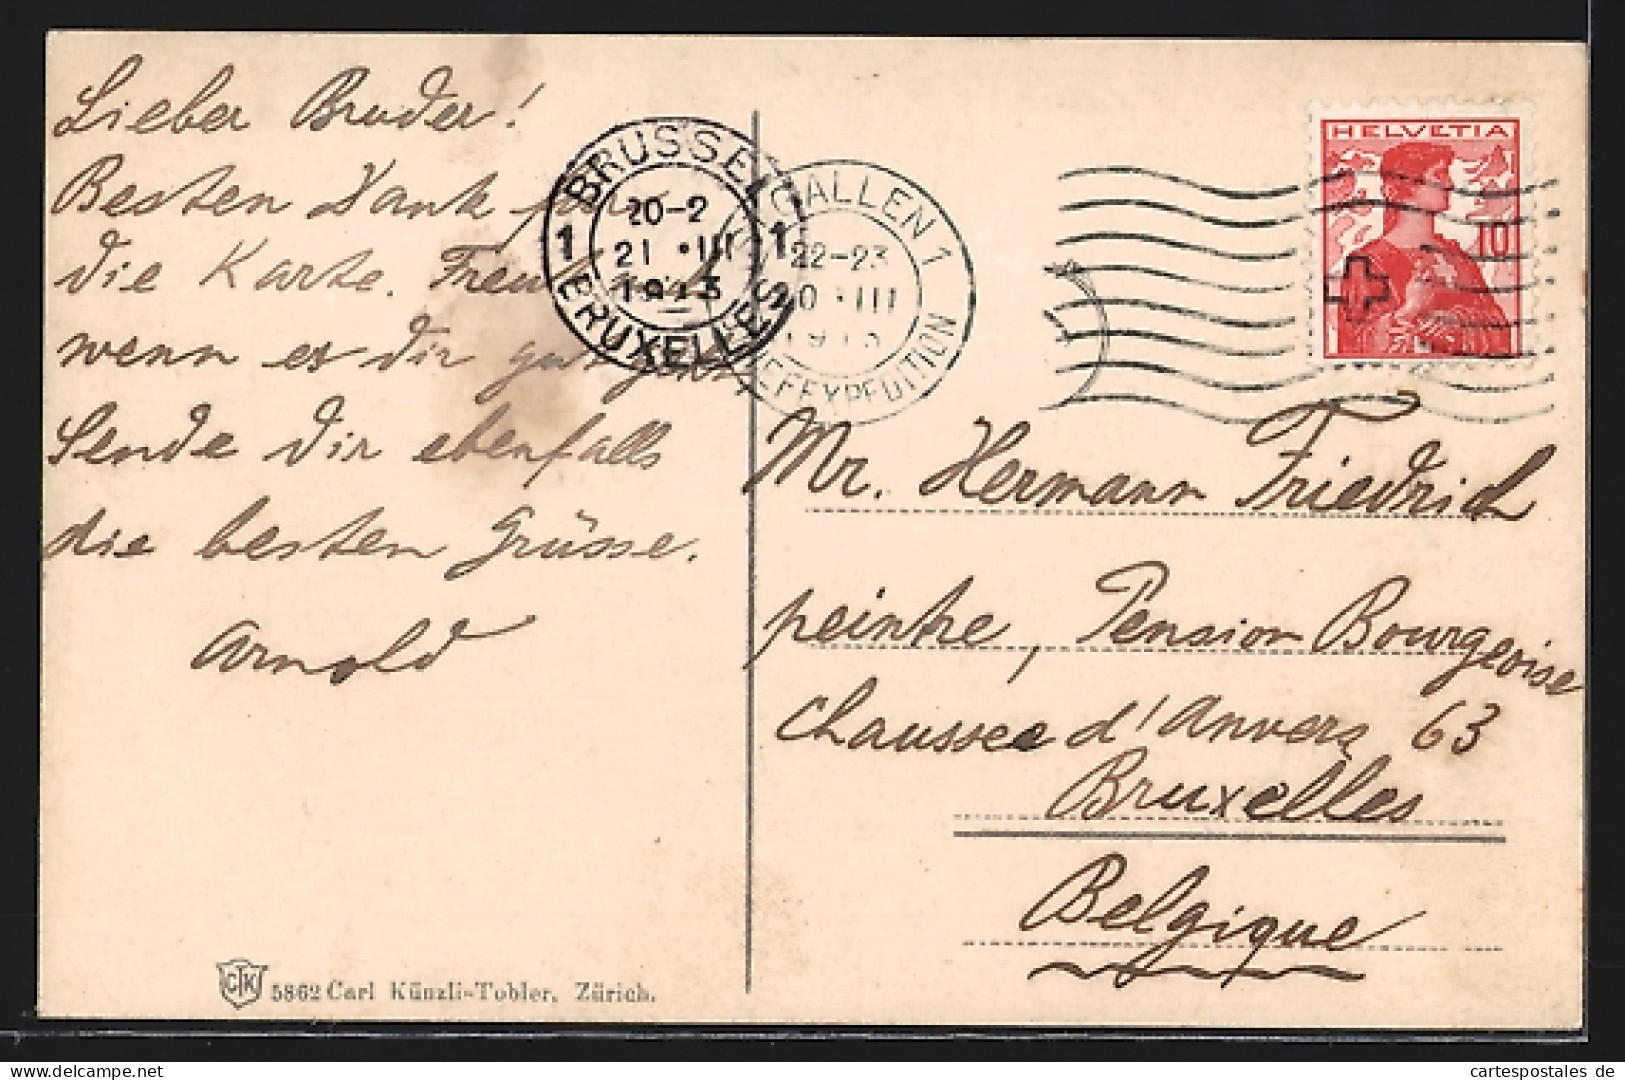 Lieber Bruder!
Besten Dank für
die Karte. Freut mich
wenn es dir gut geht,
Sende dir ebenfalls
die besten Grüsse.
Arnold
CTK 5862 Carl Künzli-Tobler, Zürich.
BRUSSEL
1 20-2 1
21 · III
1913
BRUXELLES
GALLEN 1
22-23
20 · III
1913
BRIEFEXPEDITION
HELVETIA
10
Mr. Hermann Friedrich
peintre, Pension Bourgeoise
Chaussee d'Anvers 63
Bruxelles
Belgique
www.cartespostales.de
cartespostales de